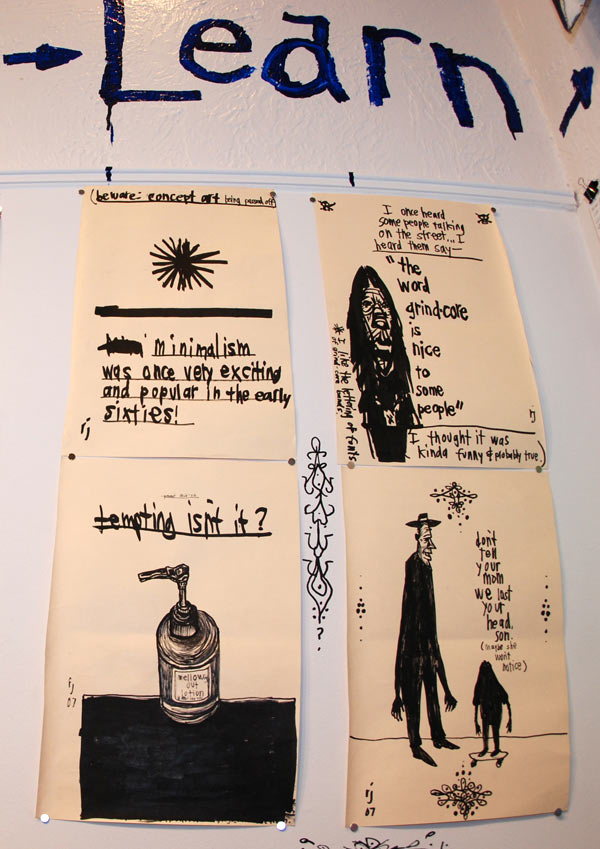 Learn
(beware: concept art being passed off
minimalism
was once very exciting
and popular in the early
sixties!
rj
I once heard
some people talking
on the street... I
heard them say—
"the
word
grind-core
is
nice
to
some
people"
* I like the lettring of fonts
rj
I thought it was
kinda funny & probably true.)
tempting isn't it?
mellow
out
lotion
rj
07
don't
tell
your
mom
we lost
your
head,
son.
(maybe she
won't
notice)
rj
07
?